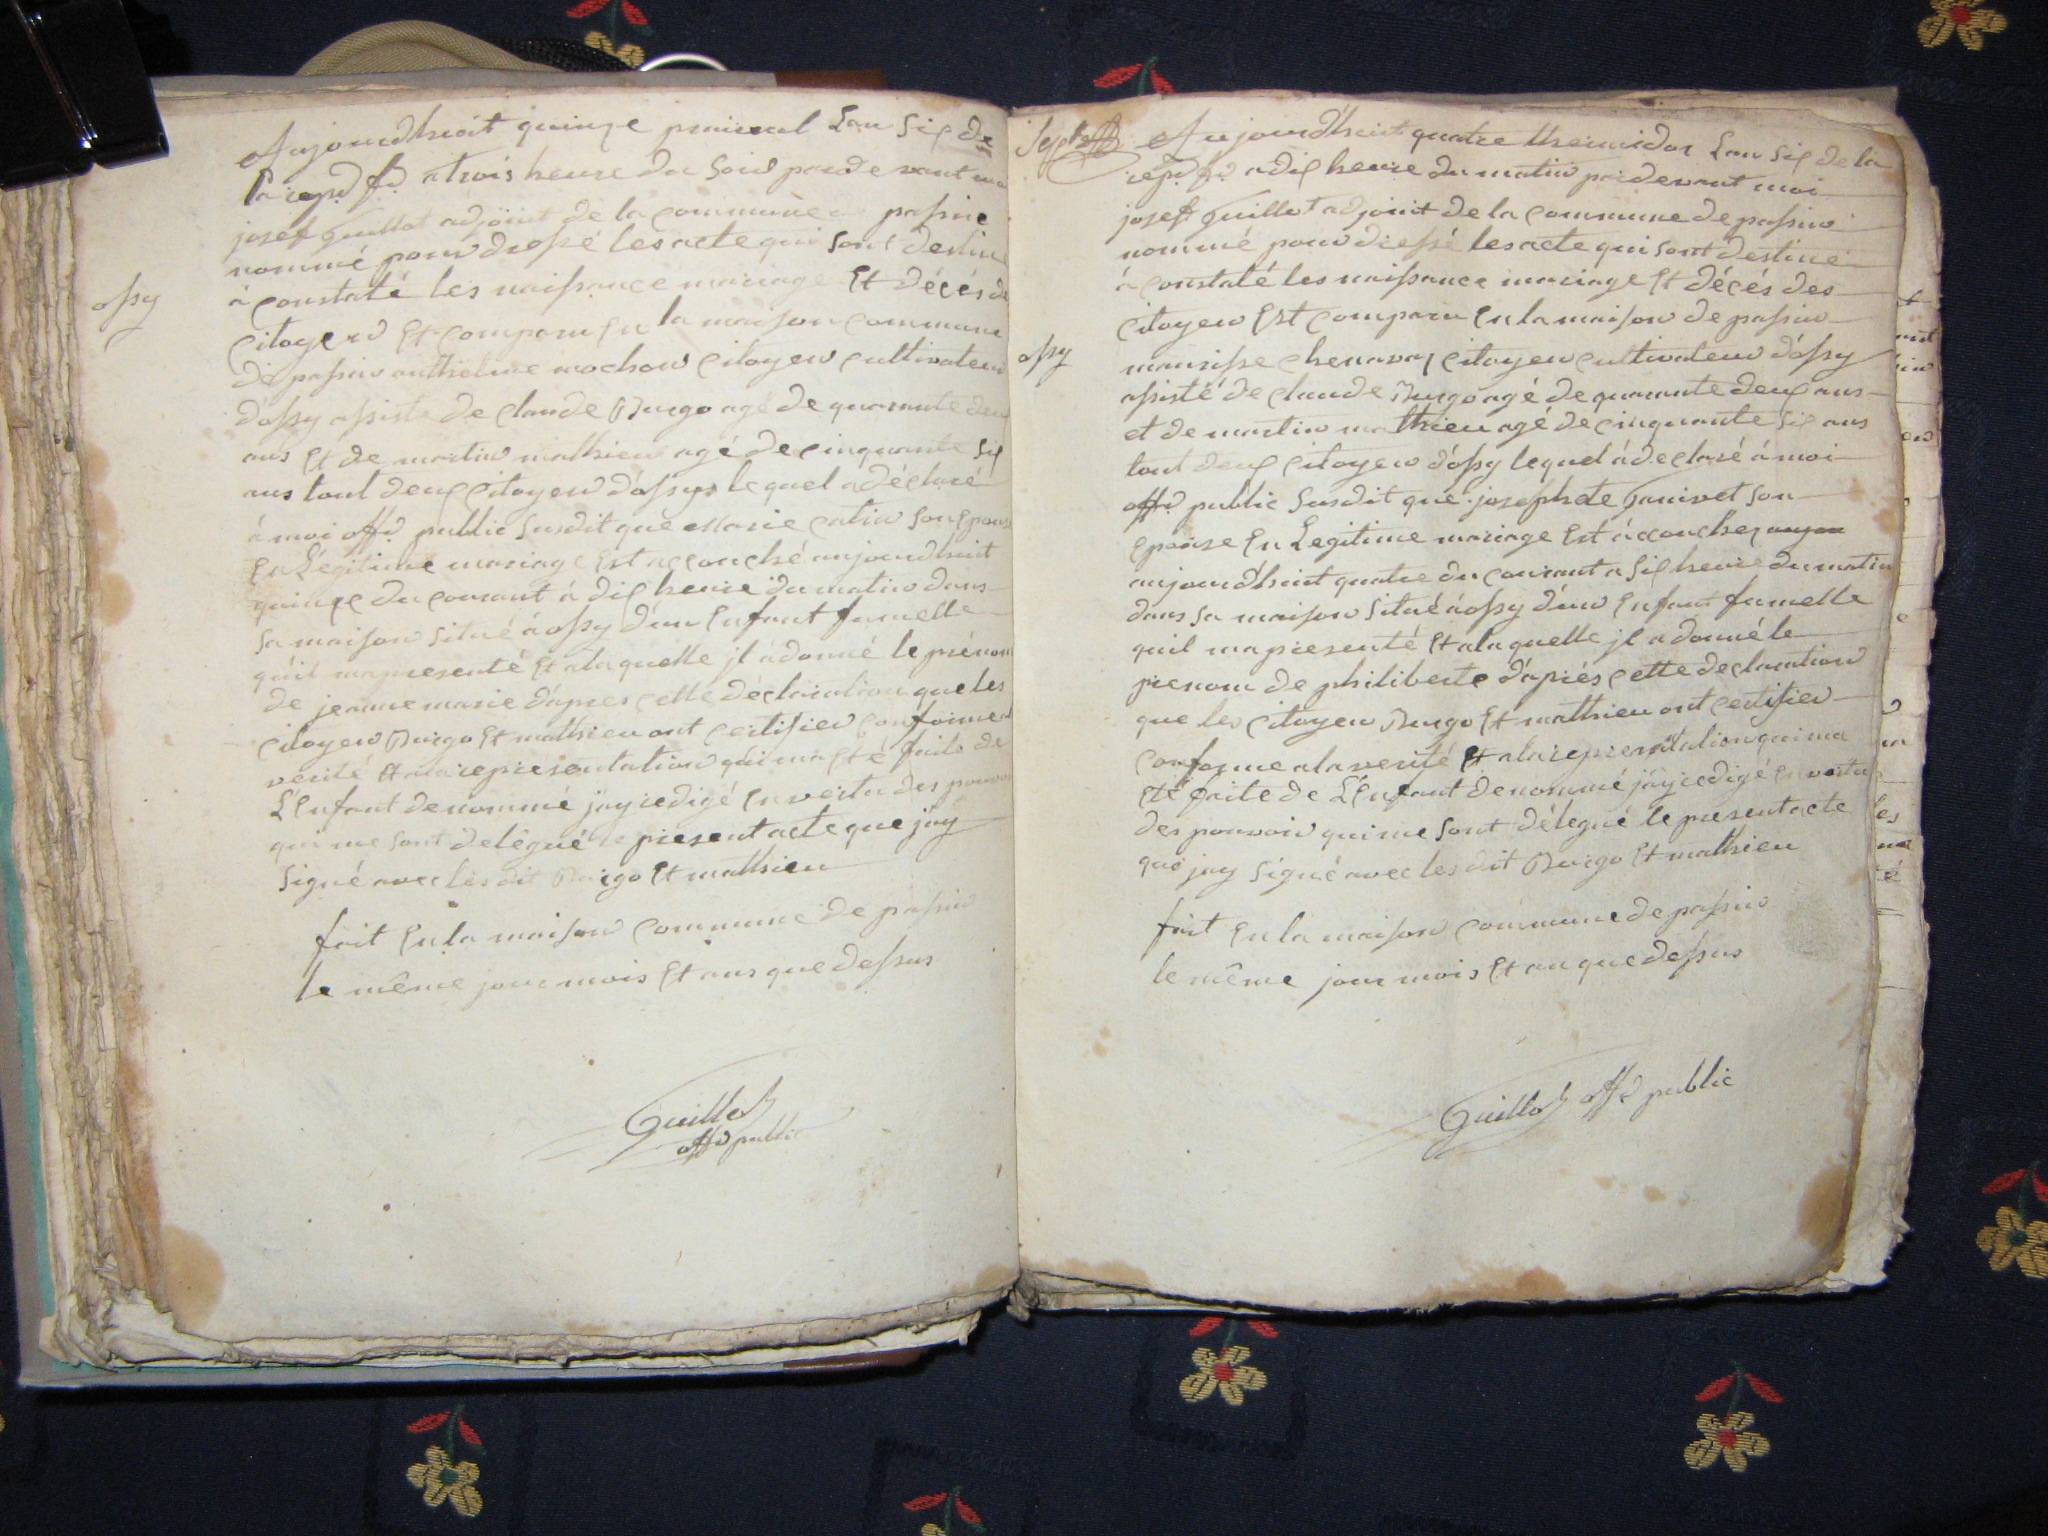 Aujourdhuit quinze prairial Lan Six de
la repu fr a trois heure du Soir pardevant moi
josef Guillot adjoint de la commune de passin
nommé pour dressé les acte qui sont destiné
à constaté les naissance mariage Et décés de
ossy
citoyen Et comparu En la maison commune
de passin anthelme mochon citoyen cultivateur
d'ossy assisté de claude Burgo agé de quarante deux
ans Et de martin mathieu agé de cinquante six
ans tout deux citoyen d'ossy lequel a déclaré
à moi offr public susdit que marie catin son Epouse
En Légitime mariage Est accouché aujourdhuit
quinze du courant à dix heure du matin dans
sa maison situé à ossy d'un Enfant fumelle
quil ma presenté Et a laquelle jl à donné le prénom
de jeanne marie d'apres cette déclaration que les
citoyen Burgo Et mathieu ont certifier conforme a
verité Et a la représentation qui ma Eté faite de
L'Enfant denommé j'ay redigé En vertu des pouvoir
qui me sont delégué le present acte que j'ay
signé avec les dit Burgo Et mathieu
fait En la maison commune de passin
le même jour mois Et ans que dessus
Guillot
offr public
Sept
Aujourdhuit quatre thermidor Lan six de la
repu fr a dix heure du matin pardevant moi
josef Guillot adjoint de la commune de passin
nommé pour dressé les acte qui sont destiné
à constaté les naissance mariage Et décés des
citoyen Est comparu En la maison de passin
ossy
maurisse chenavaz citoyen cultivateur d'ossy
assisté de claude Burgo agé de quarante deux ans
et de martin mathieu agé de cinquante six ans
tout deux citoyen d'ossy lequel à declaré à moi
offr public susdit que josephete Ganivet son
Epouse En Legitime mariage Est àccouchez
aujourdhuit quatre du courant a six heure du matin
dans sa maison situé à ossy d'un Enfant fumelle
quil ma presenté Et a laquelle jl a donné le
prenom de philiberte d'aprés cette declaration
que les citoyen Burgo Et mathieu ont certifier
conforme a la verité Et a la representation qui ma
Eté faite de L'Enfant denommé j'ay redigé En vertu
des pouvoir qui me sont délegué le present acte
que j'ay signé avec les dit Burgo Et mathieu
fait En la maison commune de passin
le même jour mois Et an que dessus
Guillot offr public